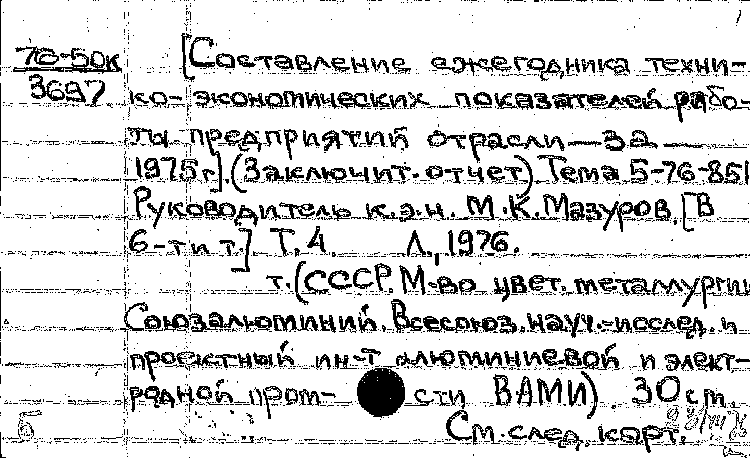 76-50к [Составление ежегодника техни-
3697 ко-экономических показателей рабо-
ты предприятий отрасли за
1975г]. (Заключит. отчет) Тема 5-76-851
Руководитель к.э.н. М.К. Мазуров. [В
6-ти т.] Т. 4. Л., 1976.
т. (СССР. М-во цвет. металлургии
Союзалюминий. Всесоюз. науч.-исслед. и
проектный ин-т алюминиевой и элект-
родной пром-сти ВАМИ). 30 см.
Б См. след. карт.